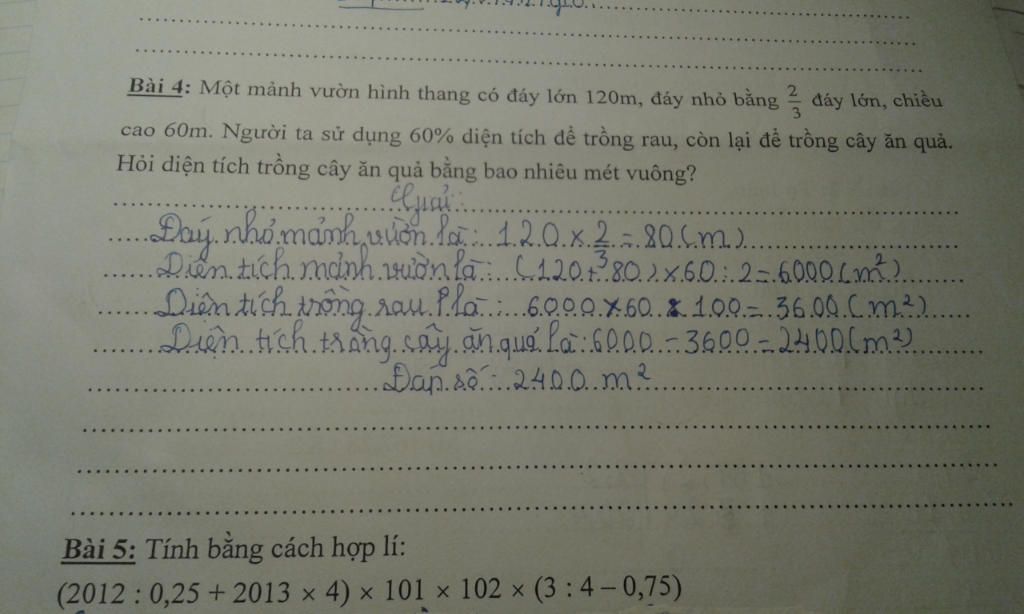 Bài 4: Một mảnh vườn hình thang có đáy lớn 120m, đáy nhỏ bằng 2/3 đáy lớn, chiều
cao 60m. Người ta sử dụng 60% diện tích để trồng rau, còn lại để trồng cây ăn quả.
Hỏi diện tích trồng cây ăn quả bằng bao nhiêu mét vuông?
Giải:
Đáy nhỏ mảnh vườn là: 120 × 2/3 = 80 (m)
Diện tích mảnh vườn là: (120 + 80) × 60 : 2 = 6000 (m²)
Diện tích trồng rau là: 6000 × 60 : 100 = 3600 (m²)
Diện tích trồng cây ăn quả là: 6000 - 3600 = 2400 (m²)
Đáp số: 2400 m²
Bài 5: Tính bằng cách hợp lí:
(2012 : 0,25 + 2013 × 4) × 101 × 102 × (3 : 4 – 0,75)